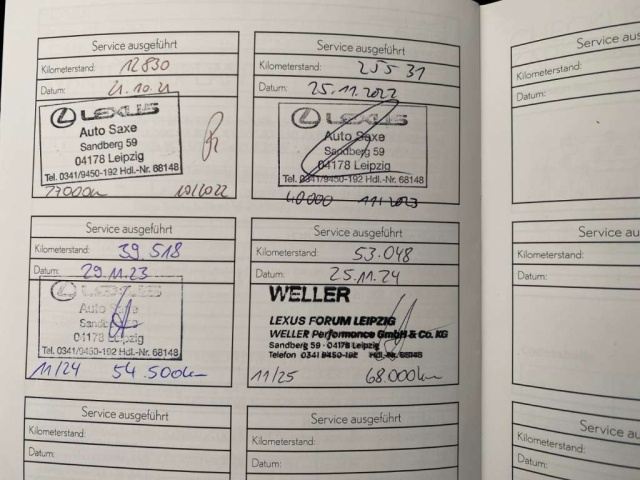 Service ausgeführt
Kilometerstand: 12830
Datum: 21.10.21
LEXUS
Auto Saxe
Sandberg 59
04178 Leipzig
Tel. 0341/9450-192 Hdl.-Nr. 68148
27000km 10/2022
Service ausgeführt
Kilometerstand: 25531
Datum: 25.11.2022
LEXUS
Auto Saxe
Sandberg 59
04178 Leipzig
Tel. 0341/9450-192 Hdl.-Nr. 68148
40000 11/2023
Service ausgeführt
Kilometerstand: 39.518
Datum: 29.11.23
LEXUS
Auto Saxe
Sandberg 59
04178 Leipzig
Tel. 0341/9450-192 Hdl.-Nr. 68148
11/24 54.500km
Service ausgeführt
Kilometerstand: 53.048
Datum: 25.11.24
WELLER
LEXUS FORUM LEIPZIG
WELLER Performance GmbH & Co. KG
Sandberg 59 · 04178 Leipzig
Telefon 0341 9450-192 Hdl.-Nr. 68148
11/25 68.000km
Service ausgeführt
Kilometerstand:
Datum:
Service ausgeführt
Kilometerstand:
Datum:
Service aus
Kilometerstand:
Datum:
Service au
Kilometerstand:
Datum:
Service a
Kilometerstand:
Datum: